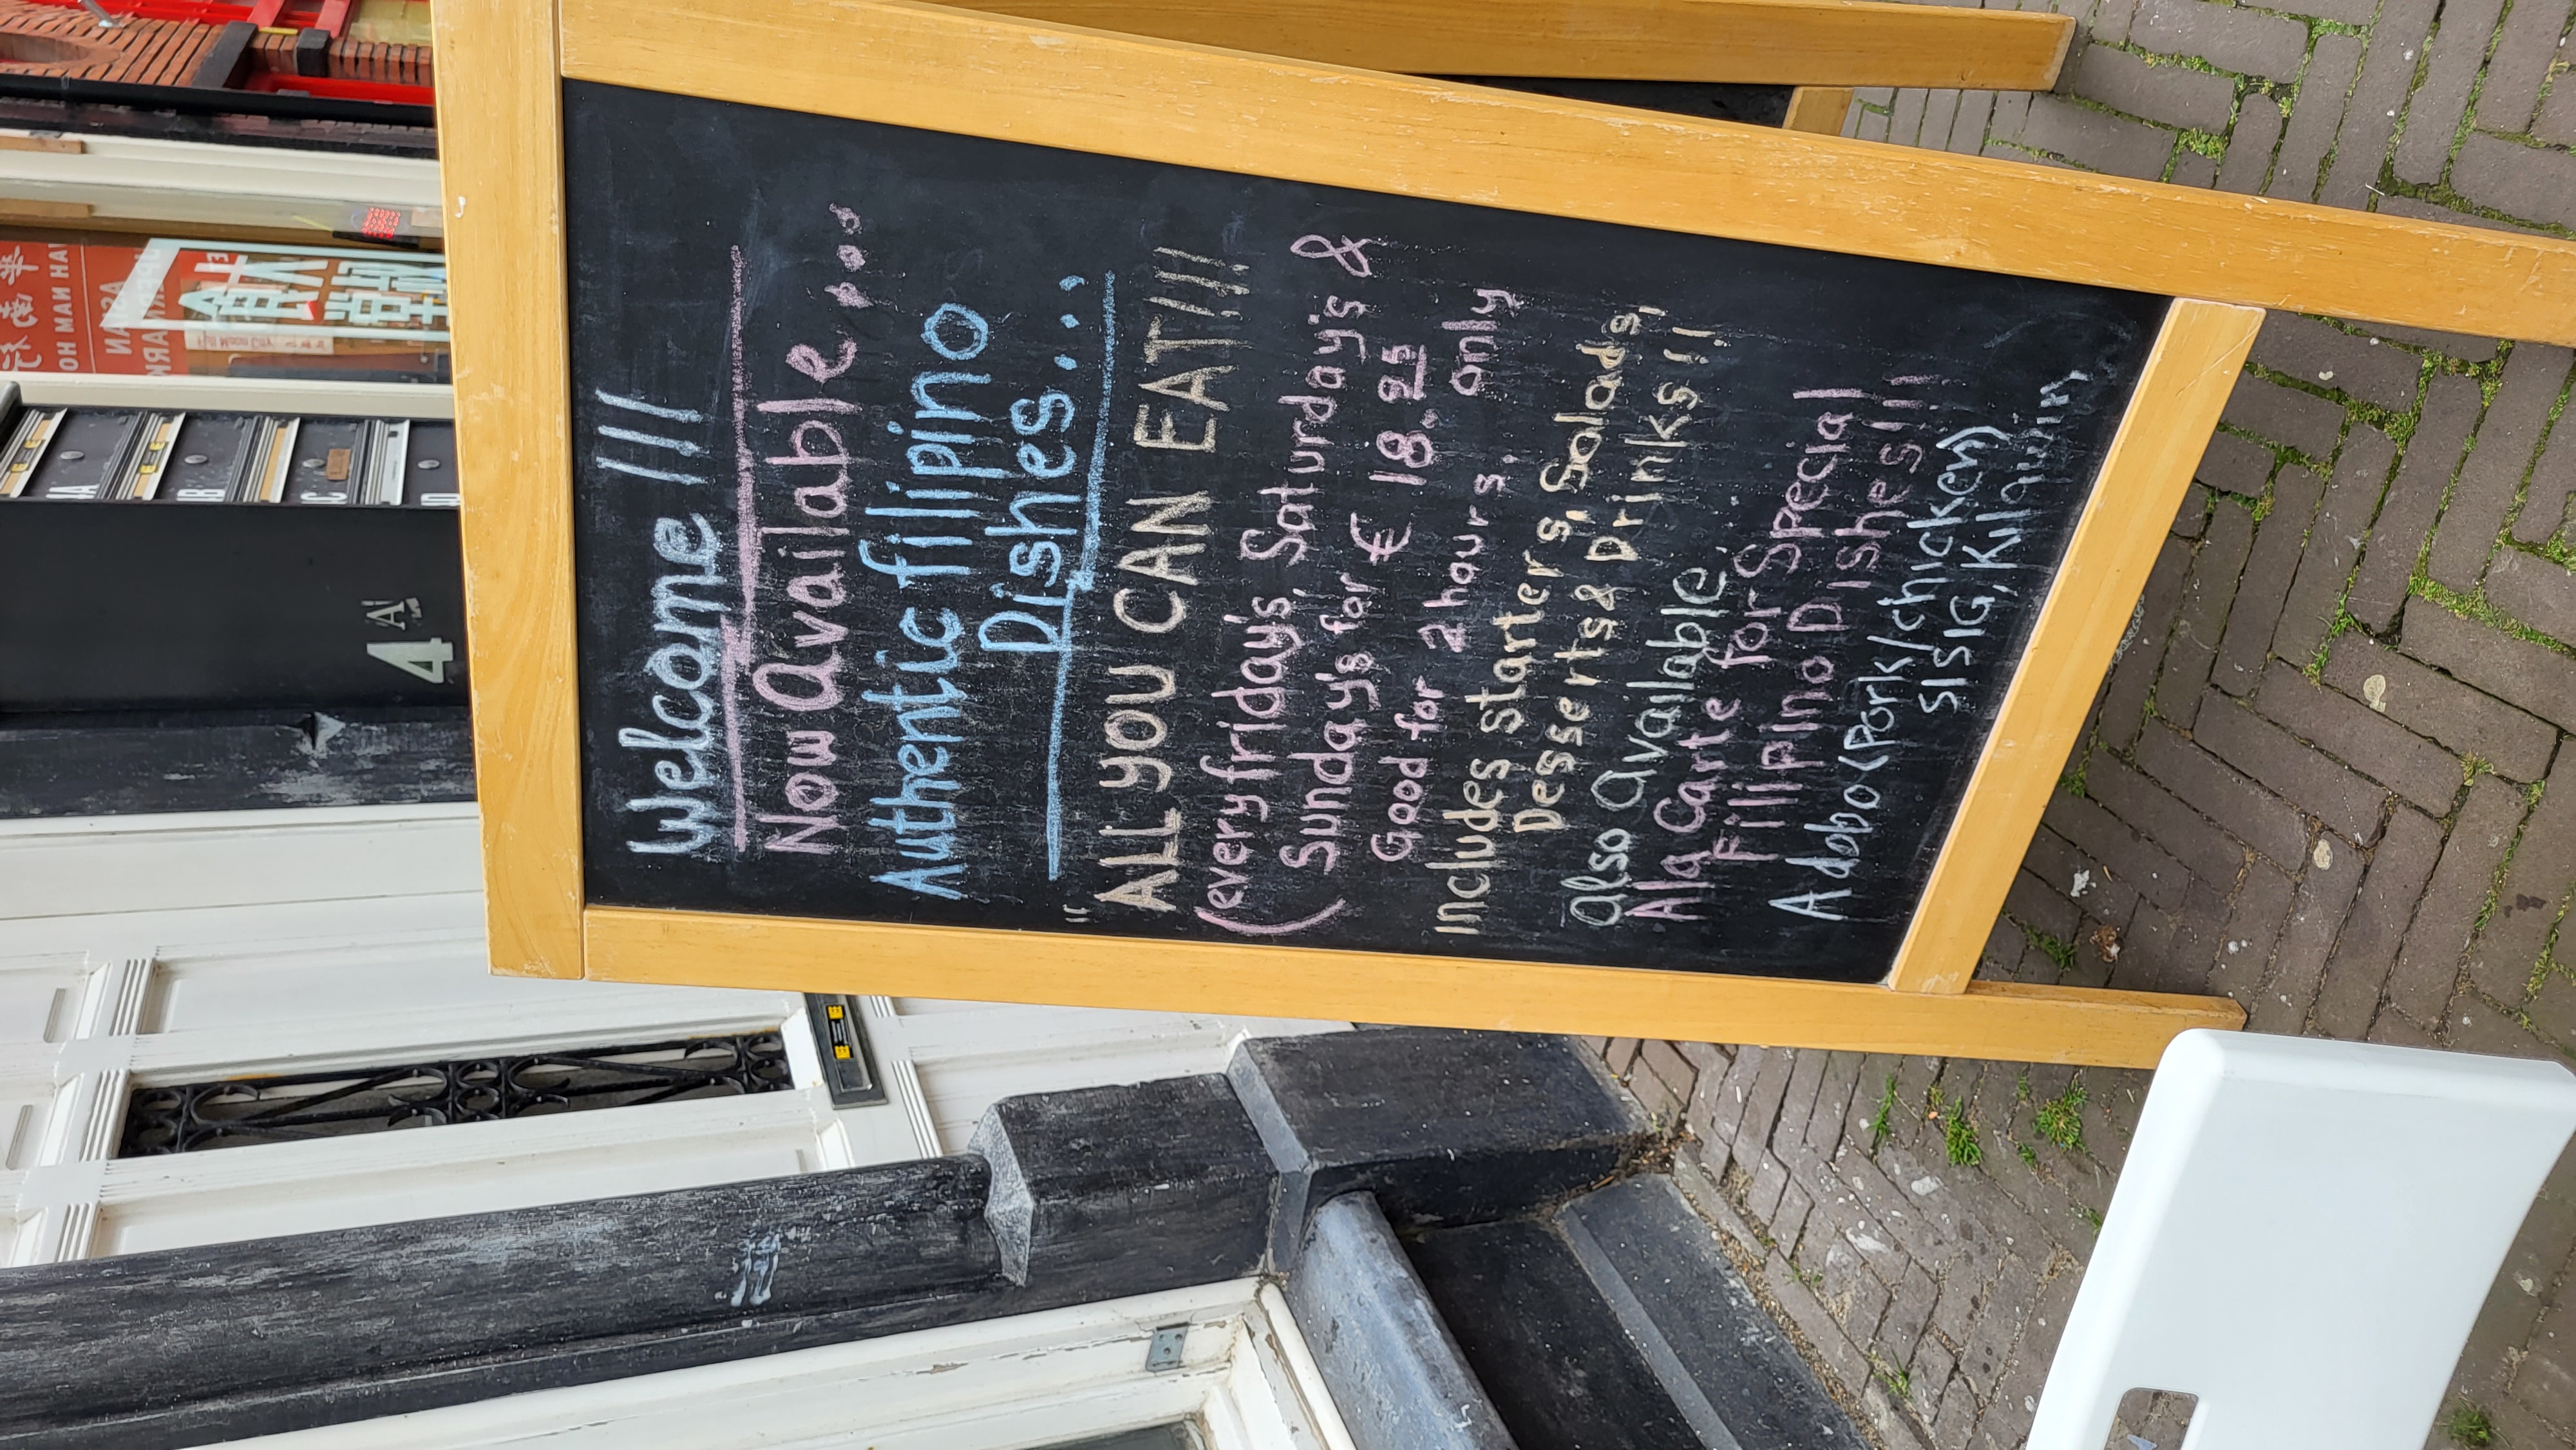 4A
1A
1B
1C
1D
NEE NEE
WAH NAM HO
ASIAN
大食堂
Welcome !!!
Now Available...
Authentic filipino
Dishes...
"ALL YOU CAN EAT!!!
(every friday's, Saturday's &
Sunday's for € 18.25
Good for 2 hours, only
includes starters, Salads,
Desserts & Drinks!!
also Available,
Ala Carte for Special
Filipino Dishes!!!
Adobo (Pork/chicken)
SISIG, Kilawin,